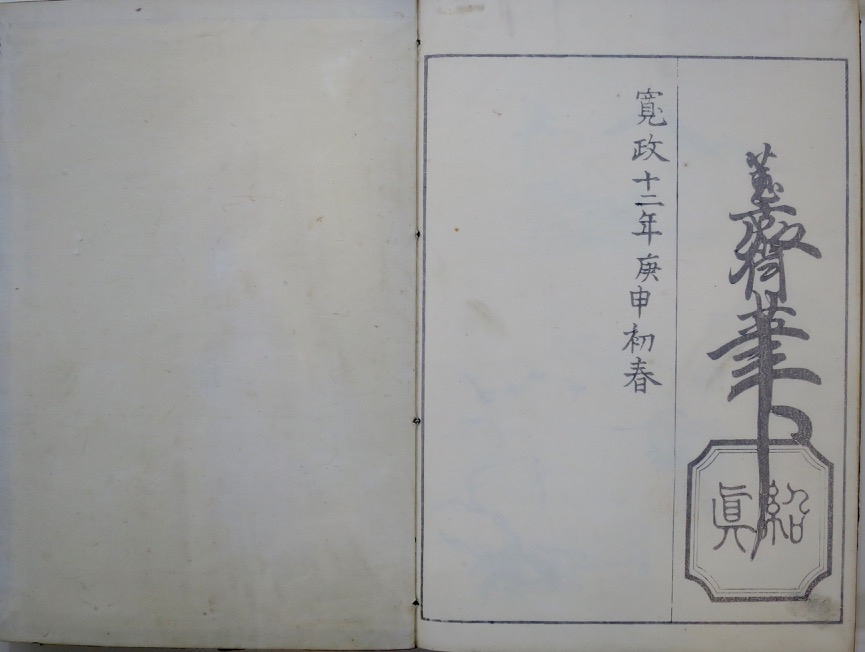 蕙齋筆
紹真
寛政十二年庚申初春